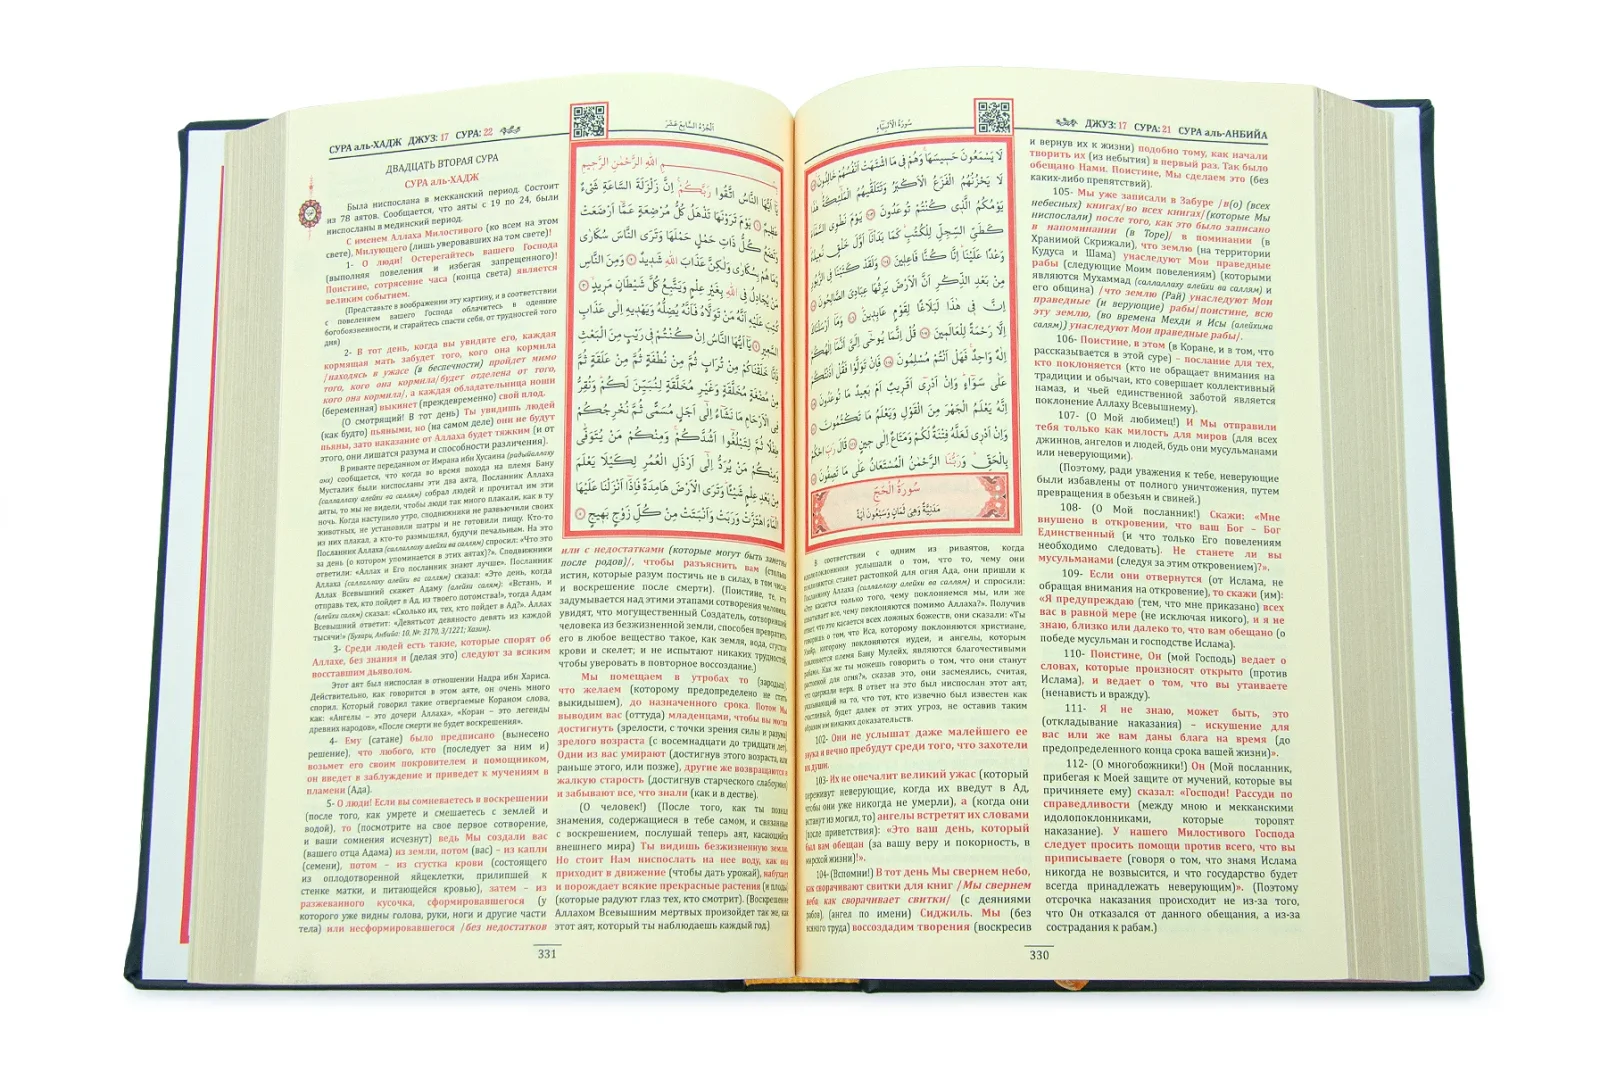 СУРА аль-ХАДЖ ДЖУЗ: 17 СУРА: 22
اَلْجُزْءُ السَّابِعُ عَشَرَ
ДВАДЦАТЬ ВТОРАЯ СУРА
СУРА аль-ХАДЖ
Была ниспослана в мекканский период. Состоит
из 78 аятов. Сообщается, что аяты с 19 по 24, были
ниспосланы в мединский период.
С именем Аллаха Милостивого (ко всем на этом
свете), Милующего (лишь уверовавших на том свете)!
1- О люди! Остерегайтесь вашего Господа
(выполняя повеления и избегая запрещенного)!
Поистине, сотрясение часа (конца света) является
великим событием.
(Представьте в воображении эту картину, и в соответствии
с повелением вашего Господа облачитесь в одеяние
богобоязненности, и старайтесь спасти себя, от трудностей того
дня)
2- В тот день, когда вы увидите его, каждая
кормящая мать забудет того, кого она кормила
/находясь в ужасе (в беспечности) пройдет мимо
того, кого она кормила/будет отделена от того,
кого она кормила/, а каждая обладательница ноши
(беременная) выкинет (преждевременно) свой плод.
(О смотрящий! В тот день) Ты увидишь людей
(как будто) пьяными, но (на самом деле) они не будут
пьяны, зато наказание от Аллаха будет тяжким (и от
этого, они лишатся разума и способности различения).
В риваяте переданном от Имрана ибн Хусаина (радыйаллаху
анх) сообщается, что когда во время похода на племя Бану
Мусталик были ниспосланы эти два аята, Посланник Аллаха
(саллаллаху алейхи ва саллям) собрал людей и прочитал им эти
аяты, то мы не видели, чтобы люди так много плакали, как в ту
ночь. Когда наступило утро, сподвижники не развьючили своих
животных, не установили шатры и не готовили пищу. Кто-то
из них плакал, а кто-то размышлял, будучи печальным. На это
Посланник Аллаха (саллаллаху алейхи ва саллям) спросил: «Что это
за день (о котором упоминается в этих аятах)?». Сподвижники
ответили: «Аллах и Его посланник знают лучше». Посланник
Аллаха (саллаллаху алейхи ва саллям) сказал: «Это день, когда
Аллах Всевышний скажет Адаму (алейхи салям): «Встань, и
отправь тех, кто пойдет в Ад, из твоего потомства!», тогда Адам
(алейхи салям) сказал: «Сколько их, тех, кто пойдет в Ад?». Аллах
Всевышний ответит: «Девятьсот девяносто девять из каждой
тысячи!» (Бухари, Анбийа: 10, №: 3170, 3/1221; Хазин).
3- Среди людей есть такие, которые спорят об
Аллахе, без знания и (делая это) следуют за всяким
восставшим дьяволом.
Этот аят был ниспослан в отношении Надра ибн Хариса.
Действительно, как говорится в этом аяте, он очень много
спорил. Который говорил такие отвергаемые Кораном слова,
как: «Ангелы – это дочери Аллаха», «Коран – это легенды
древних народов», «После смерти не будет воскрешения».
4- Ему (сатане) было предписано (вынесено
решение), что любого, кто (последует за ним и)
возьмет его своим покровителем и помощником,
он введет в заблуждение и приведет к мучениям в
пламени (Ада).
5- О люди! Если вы сомневаетесь в воскрешении
(после того, как умрете и смешаетесь с землей и
водой), то (посмотрите на свое первое сотворение,
и ваши сомнения исчезнут) ведь Мы создали вас
(вашего отца Адама) из земли, потом (вас) – из капли
(семени), потом – из сгустка крови (состоящего
из оплодотворенной яйцеклетки, прилипшей к
стенке матки, и питающейся кровью), затем – из
разжеванного кусочка, сформировавшегося (у
которого уже видны голова, руки, ноги и другие части
тела) или несформировавшегося /без недостатков
بِسْمِ اللهِ الرَّحْمٰنِ الرَّحِيمِ
يَا اَيُّهَا النَّاسُ اتَّقُوا رَبَّكُمْۚ اِنَّ زَلْزَلَةَ السَّاعَةِ شَيْءٌ
عَظِيمٌ ١ يَوْمَ تَرَوْنَهَا تَذْهَلُ كُلُّ مُرْضِعَةٍ عَمَّٓا اَرْضَعَتْ
وَتَضَعُ كُلُّ ذَاتِ حَمْلٍ حَمْلَهَا وَتَرَى النَّاسَ سُكَارٰى
وَمَا هُمْ بِسُكَارٰى وَلٰكِنَّ عَذَابَ اللهِ شَدِيدٌ ٢ وَمِنَ النَّاسِ
مَنْ يُجَادِلُ فِى اللهِ بِغَيْرِ عِلْمٍ وَيَتَّبِعُ كُلَّ شَيْطَانٍ مَرِيدٍ ٣
كُتِبَ عَلَيْهِ اَنَّهُ مَنْ تَوَلَّاهُ فَاَنَّهُ يُضِلُّهُ وَيَهْدِيهِ اِلٰى عَذَابِ
السَّعِيرِ ٤ يَٓا اَيُّهَا النَّاسُ اِنْ كُنْتُمْ فِى رَيْبٍ مِنَ الْبَعْثِ
فَاِنَّا خَلَقْنَاكُمْ مِنْ تُرَابٍ ثُمَّ مِنْ نُطْفَةٍ ثُمَّ مِنْ عَلَقَةٍ ثُمَّ
مِنْ مُضْغَةٍ مُخَلَّقَةٍ وَغَيْرِ مُخَلَّقَةٍ لِنُبَيِّنَ لَكُمْۜ وَنُقِرُّ
فِى الْاَرْحَامِ مَا نَشَٓاءُ اِلٰٓى اَجَلٍ مُسَمًّى ثُمَّ نُخْرِجُكُمْ
طِفْلًا ثُمَّ لِتَبْلُغُٓوا اَشُدَّكُمْۚ وَمِنْكُمْ مَنْ يُتَوَفّٰى
وَمِنْكُمْ مَنْ يُرَدُّ اِلٰٓى اَرْذَلِ الْعُمُرِ لِكَيْلَا يَعْلَمَ
مِنْ بَعْدِ عِلْمٍ شَيْـًٔاۜ وَتَرَى الْاَرْضَ هَامِدَةً فَاِذَٓا اَنْزَلْنَا عَلَيْهَا
الْمَٓاءَ اهْتَزَّتْ وَرَبَتْ وَاَنْبَتَتْ مِنْ كُلِّ زَوْجٍ بَهِيجٍ ٥
или с недостатками (которые могут быть заметны
после родов)/, чтобы разъяснить вам (столько
истин, которые разум постичь не в силах, в том числе
и воскрешение после смерти). (Поистине, те, кто
задумывается над этими этапами сотворения человека,
увидят, что могущественный Создатель, сотворивший
человека из безжизненной земли, способен превратить
его в любое вещество такое, как земля, вода, сгусток
крови и скелет; и не испытают никаких трудностей,
чтобы уверовать в повторное воссоздание.)
Мы помещаем в утробах то (зародыш),
что желаем (которому предопределено не стать
выкидышем), до назначенного срока. Потом Мы
выводим вас (оттуда) младенцами, чтобы вы могли
достигнуть (зрелости, с точки зрения силы и разума)
зрелого возраста (с восемнадцати до тридцати лет).
Одни из нас умирают (достигнув этого возраста, или
раньше этого, или позже), другие же возвращаются в
жалкую старость (достигнув старческого слабоумия)
и забывают все, что знали (как и в детстве).
(О человек!) (После того, как ты познал
знамения, содержащиеся в тебе самом, и связанные
с воскрешением, послушай теперь аят, касающийся
внешнего мира) Ты видишь безжизненную землю.
Но стоит Нам ниспослать на нее воду, как она
приходит в движение (чтобы дать урожай), набухает
и порождает всякие прекрасные растения (и плоды)
(которые радуют глаз тех, кто смотрит). (Воскрешение
Аллахом Всевышним мертвых произойдет так же, как
этот аят, который ты наблюдаешь каждый год.)
331
سُورَةُ الْاَنْبِيَاءِ
ДЖУЗ: 17 СУРА: 21 СУРА аль-АНБИЙА
لَا يَسْمَعُونَ حَسِيسَهَاۚ وَهُمْ فِى مَا اشْتَهَتْ اَنْفُسُهُمْ خَالِدُونَ ١٠٢
لَا يَحْزُنُهُمُ الْفَزَعُ الْاَكْبَرُ وَتَتَلَقّٰيهُمُ الْمَلٰٓئِكَةُۜ هٰذَا
يَوْمُكُمُ الَّذِى كُنْتُمْ تُوعَدُونَ ١٠٣ يَوْمَ نَطْوِى السَّمَٓاءَ
كَطَيِّ السِّجِلِّ لِلْكُتُبِۜ كَمَا بَدَأْنَٓا اَوَّلَ خَلْقٍ نُعِيدُهُۜ
وَعْدًا عَلَيْنَاۜ اِنَّا كُنَّا فَاعِلِينَ ١٠٤ وَلَقَدْ كَتَبْنَا فِى الزَّبُورِ
مِنْ بَعْدِ الذِّكْرِ اَنَّ الْاَرْضَ يَرِثُهَا عِبَادِىَ الصَّالِحُونَ ١٠٥
اِنَّ فِى هٰذَا لَبَلَاغًا لِقَوْمٍ عَابِدِينَ ١٠٦ وَمَٓا اَرْسَلْنَاكَ
اِلَّا رَحْمَةً لِلْعَالَمِينَ ١٠٧ قُلْ اِنَّمَا يُوحٰٓى اِلَيَّ اَنَّمَٓا اِلٰهُكُمْ
اِلٰهٌ وَاحِدٌۚ فَهَلْ اَنْتُمْ مُسْلِمُونَ ١٠٨ فَاِنْ تَوَلَّوْا فَقُلْ اٰذَنْتُكُمْ
عَلٰى سَوَٓاءٍۜ وَاِنْ اَدْرِٓى اَقَرِيبٌ اَمْ بَعِيدٌ مَا تُوعَدُونَ ١٠٩
اِنَّهُ يَعْلَمُ الْجَهْرَ مِنَ الْقَوْلِ وَيَعْلَمُ مَا تَكْتُمُونَ ١١٠
وَاِنْ اَدْرِى لَعَلَّهُ فِتْنَةٌ لَكُمْ وَمَتَاعٌ اِلٰى حِينٍ ١١١ قَالَ رَبِّ احْكُمْ
بِالْحَقِّۜ وَرَبُّنَا الرَّحْمٰنُ الْمُسْتَعَانُ عَلٰى مَا تَصِفُونَ ١١٢
سُورَةُ الْحَجِّ
مَدَنِيَّةٌ وَهِىَ ثَمَانٍ وَسَبْعُونَ اٰيَةً
В соответствии с одним из риваятов, когда
идолопоклонники услышали о том, что то, чему они
поклоняются станет растопкой для огня Ада, они пришли к
Посланнику Аллаха (саллаллаху алейхи ва саллям) и спросили:
«Это касается только того, чему поклоняемся мы, или же
охватывает все, чему поклоняются помимо Аллаха?». Получив
ответ, что это касается всех ложных божеств, они сказали: «Ты
говоришь о том, что Иса, которому поклоняются христиане,
Узейр, которому поклоняются иудеи, и ангелы, которым
поклоняется племя Бану Мулейх, являются благочестивыми
рабами. Как же ты можешь говорить о том, что они станут
растопкой для огня?», сказав это, они засмеялись, считая,
что одержали верх. В ответ на это был ниспослан этот аят,
указывающий на то, что тот, кто извечно был известен как
счастливый, будет далек от этих угроз, не оставив таким
образом им никаких доказательств.
102- Они не услышат даже малейшего ее
звука и вечно пребудут среди того, что захотели
их души.
103- Их не опечалит великий ужас (который
переживут неверующие, когда их введут в Ад,
чтобы они уже никогда не умерли), а (когда они
встанут из могил, то) ангелы встретят их словами
(после приветствия): «Это ваш день, который
был вам обещан (за вашу веру и покорность, в
мирской жизни)!».
104- (Вспомни!) В тот день Мы свернем небо,
как сворачивают свитки для книг /Мы свернем
небо как сворачивает свитки/ (с деяниями
рабов), (ангел по имени) Сиджиль. Мы (без
всякого труда) воссоздадим творения (воскресив
и вернув их к жизни) подобно тому, как начали
творить их (из небытия) в первый раз. Так было
обещано Нами. Поистине, Мы сделаем это (без
каких-либо препятствий).
105- Мы уже записали в Забуре /в(о) (всех
небесных) книгах/во всех книгах/(которые Мы
ниспослали) после того, как это было записано
в напоминании (в Торе)/ в поминании (в
Хранимой Скрижали), что землю (на территории
Кудуса и Шама) унаследуют Мои праведные
рабы (следующие Моим повелениям) (которыми
являются Мухаммад (саллаллаху алейхи ва саллям) и
его община) /что землю (Рай) унаследуют Мои
праведные (и верующие) рабы/поистине, всю
эту землю, (во времена Мехди и Исы (алейхима
салям)) унаследуют Мои праведные рабы/.
106- Поистине, в этом (в Коране, и в том, что
рассказывается в этой суре) – послание для тех,
кто поклоняется (кто не обращает внимания на
традиции и обычаи, кто совершает коллективный
намаз, и чьей единственной заботой является
поклонение Аллаху Всевышнему).
107- (О Мой любимец!) И Мы отправили
тебя только как милость для миров (для всех
джиннов, ангелов и людей, будь они мусульманами
или неверующими).
(Поэтому, ради уважения к тебе, неверующие
были избавлены от полного уничтожения, путем
превращения в обезьян и свиней.)
108- (О Мой посланник!) Скажи: «Мне
внушено в откровении, что ваш Бог – Бог
Единственный (и что только Его повелениям
необходимо следовать). Не станете ли вы
мусульманами (следуя за этим откровением)?».
109- Если они отвернутся (от Ислама, не
обращая внимания на откровение), то скажи (им):
«Я предупреждаю (тем, что мне приказано) всех
вас в равной мере (не исключая никого), и я не
знаю, близко или далеко то, что вам обещано (о
победе мусульман и господстве Ислама).
110- Поистине, Он (мой Господь) ведает о
словах, которые произносят открыто (против
Ислама), и ведает о том, что вы утаиваете
(ненависть и вражду).
111- Я не знаю, может быть, это
(откладывание наказания) – искушение для
вас или же вам даны блага на время (до
предопределенного конца срока вашей жизни)».
112- (О многобожники!) Он (Мой посланник,
прибегая к Моей защите от мучений, которые вы
причиняете ему) сказал: «Господи! Рассуди по
справедливости (между мною и мекканскими
идолопоклонниками, которые торопят
наказание). У нашего Милостивого Господа
следует просить помощи против всего, что вы
приписываете (говоря о том, что знамя Ислама
никогда не возвысится, и что государство будет
всегда принадлежать неверующим)». (Поэтому
отсрочка наказания происходит не из-за того,
что Он отказался от данного обещания, а из-за
сострадания к рабам.)
330